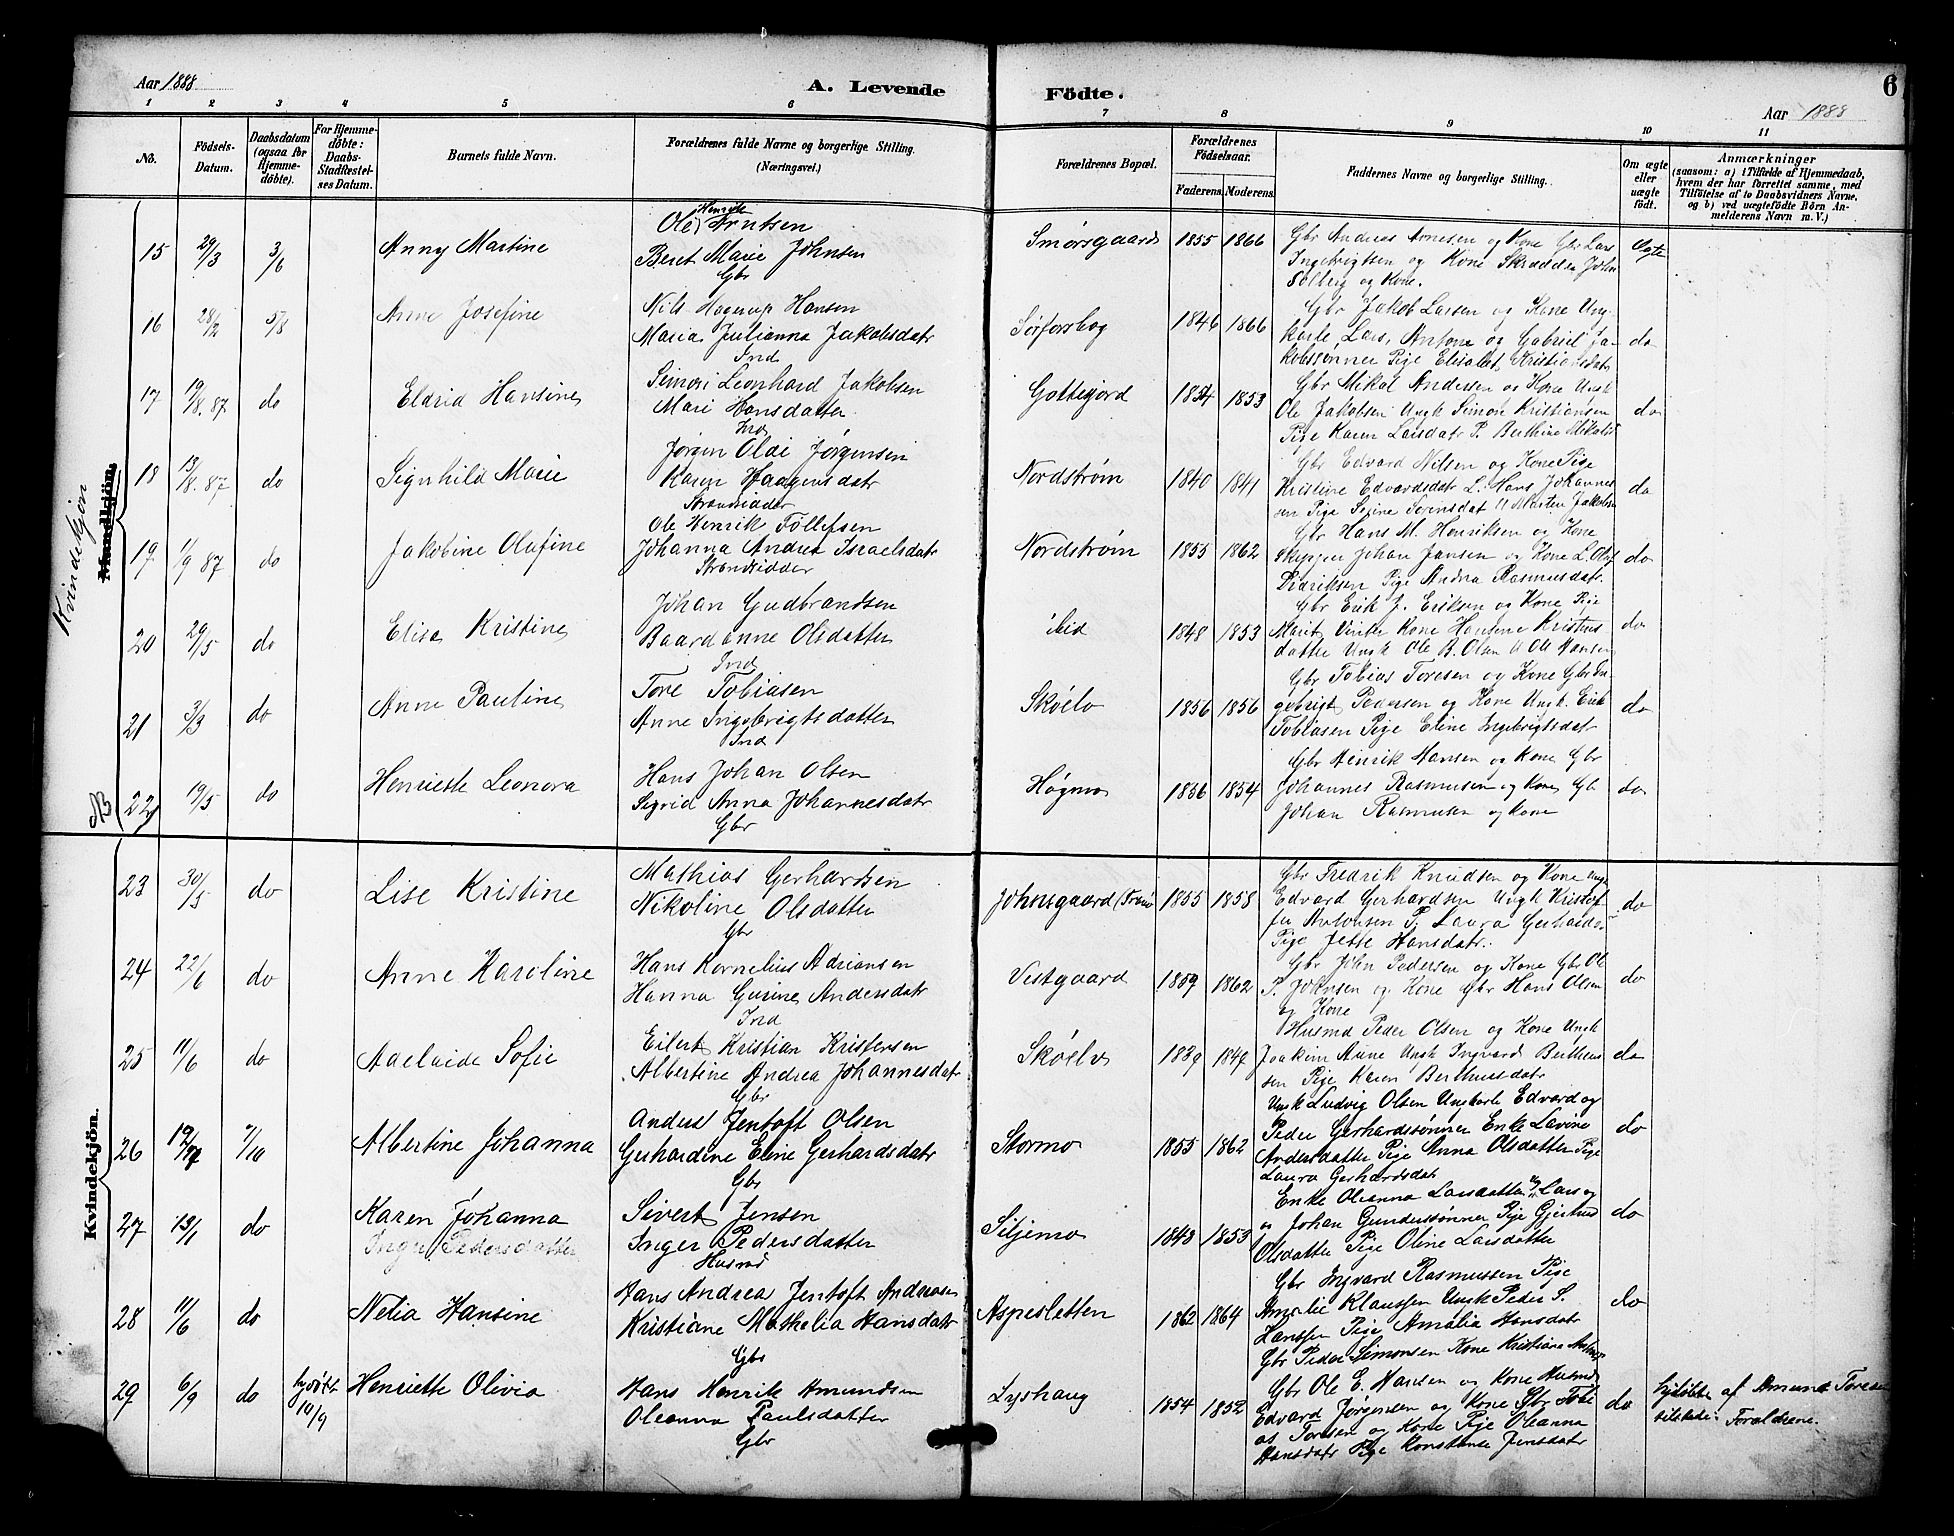 Aar 1888
A. Levende Födte.
6
Aar 1888
1 2 3 4 5 6 7 8 9 10 11
No.
Födsels-
Datum.
Daabsdatum
(ogsaa for
Hjemme-
døbte).
For Hjemme-
døbte:
Daabs-
Stadfæstel-
ses Datum.
Barnets fulde Navn.
Forældrenes fulde Navne og borgerlige Stilling.
(Næringsvei.)
Forældrenes Bopæl.
Forældrenes
Födselsaar.
Faderens. Moderens.
Faddernes Navne og borgerlige Stilling.
Om ægte
eller
uægte
født.
Anmærkninger
(saasom: a) i Tilfælde af Hjemmedaab,
hvem der har forrettet samme, med
Tilføielse af to Daabsvidners Navne,
og b) ved uægtefødte Börn An-
melderens Navn m. V.)
Kvindekjøn
Mandkjön.
15 29/3 3/6 Anny Martine
Ole Henrik Arntsen
Beret Marie Johnsen
Gbr
Smørsgaard 1855 1866
Gbr Andreas Arnesen og Kone Gbr Lars
Ingebrigtsen og Kone Skrædder John
Solberg og Kone.
Ægte
16 28/2 5/8 Anne Josefine
Nils Hagerup Hansen
Maria Julianna Jakobsdatr
Ind
Sørforsbog 1846 1866
Gbr Jakob Larsen og Kone Ung-
karle Lars, Anton og Gabriel Ja-
kobssønner Pige Elisabet Kristiansdatr
do
17 19/8.87 do Eldrid Hansine
Simon Leonhard Jakobsen
Mari Hansdatter
Ind
Gottegjord 1854 1853
Gbr Mikal Andersen og Kone Ungk
Ole Jakobsen Ungk Simon Kristiansen
Pige Karen Larsdatr P. Berthine
do
18 13/8.87 do Signhild Marie
Jørgen Olai Jørgensen
Karen Haagensdatr
Strandsidder
Nordstrøm 1840 1841
Gbr Edvard Nilsen og Kone Pige
Kristine Edvardsdatr L. Hans Johannes
sen Pige Serine Sørensdat U Morten Jakobsen
do
19. 1/9 87 do Jakobine Olufine
Ole Henrik Tollefsen
Johanna Andrea Israelsdatr
Strandsidder
Nordstrøm 1855 1862
Gbr Hans M. Henriksen og Kone
Skipper Johan Jansen og Kone L. Oluf
Didriksen Pige Andrea Rasmusdatr.
do
20 29/5 do Elisa Kristine
Johan Gudbrandsen
Baardanne Olsdatter
Ind
ibid 1848 1853
Gbr Erik J. Eriksen og Kone Pige
Marit Vinter Kone Hansine Kristens
datter Ungk Ole B. Olsen U Ole Hansen
do
21 3/3 do Anne Pauline
Tore Tobiasen
Anne Ingebrigtsdatter
Ind
Skøelv 1856 1856
Gbr Tobias Toresen og Kone Gbr In-
gebrigt Pedersen og Kone Ungk Erik
Tobiasen Pige Eline Ingebrigtsdatr
do
NB
22 19/5 do Henriette Leonora
Hans Johan Olsen
Sigrid Anna Johannesdatr
Gbr
Høgmo 1856 1854
Gbr Henrik Hansen og Kone Gbr
Johannes Rasmusen og Kone Gbr
Johan Rasmusen og Kone
do
Kvindekjön.
23 30/5 do Lise Kristine
Mathias Gerhardsen
Nikoline Olsdatter
Gbr
Johnsgaard 1855 1858
Gbr Fredrik Knudsen og Kone Ungk
Edvard Gerhardsen Ungk Kristof
fer Antonsen P. Laura Gerhards-
Pige Jette Hansdatr.
do
24 22/6 do Anne Karoline
Hans Kornelius Adriansen
Hanna Gurine Andersdatr
Ind
Vestgaard 1859 1862
Gbr John Pedersen og Kone Gbr Ole
P. Johnsen og Kone Gbr Hans Olsen
og Kone
do
25 11/6 do Adelaide Sofie
Eilert Kristian Kristensen
Albertine Andrea Johannesdatr
Gbr
Skøelv 1839 1849
Husmd Peder Olsen og Kone Ungk
Joakim Aune Ungk Ingvard Bertheus
sen Pige Karen Bertheusdatr
do
26 7/10 Albertine Johanna
Anders Jentoft Olsen
Gerhardine Eline Gerhardsdatr
Gbr
Stormo 1855 1862
Ungk Ludvig Olsen Ungkarle Edvard og
Peder Gerhardssønner Enke Lavine
Andersdatter Pige Anna Olsdatter Pige
Laura Gerhardsdat
do
27 13/1 do Karen Johanna
Inger Pedersdatter
Sivert Jensen
Inger Pedersdatter
Husmd
Siljemo 1843 1853
Enke Oleanna Larsdatter Lars og
Johan Gunderssønner Pige Gjertrud
Olsdatter Pige Oline Larsdatter
do
28 11/6 do Nelia Hansine
Hans Andrea Jentoft Andreasen
Kristiane Mathelia Hansdatr
Gbr
Aspesletten 1862 1864
Gbr Ingvard Rasmussen Pige
Amalie Klaussen Ungk Peder S.
Hanssen Pige Amalia Hansdatr
Gbr Peder Simonsen Kone Kristiane
do
29 6/9 do hjdøbt 10/9 Henriette Olivia
Hans Henrik Amundsen
Oleanna Paulsdatter
Gbr
Lyshaug 1854 1852
Gbr Ole E. Hansen og Kone Husmd
Edvard Jørgensen og Kone Gbr Tobi
as Toresen og Kone Pige Oleanna
Hansdatr Pige Konstanse Jensdatr
do
hjdøbt af Amund Toresen
tilstede: Forældrene.